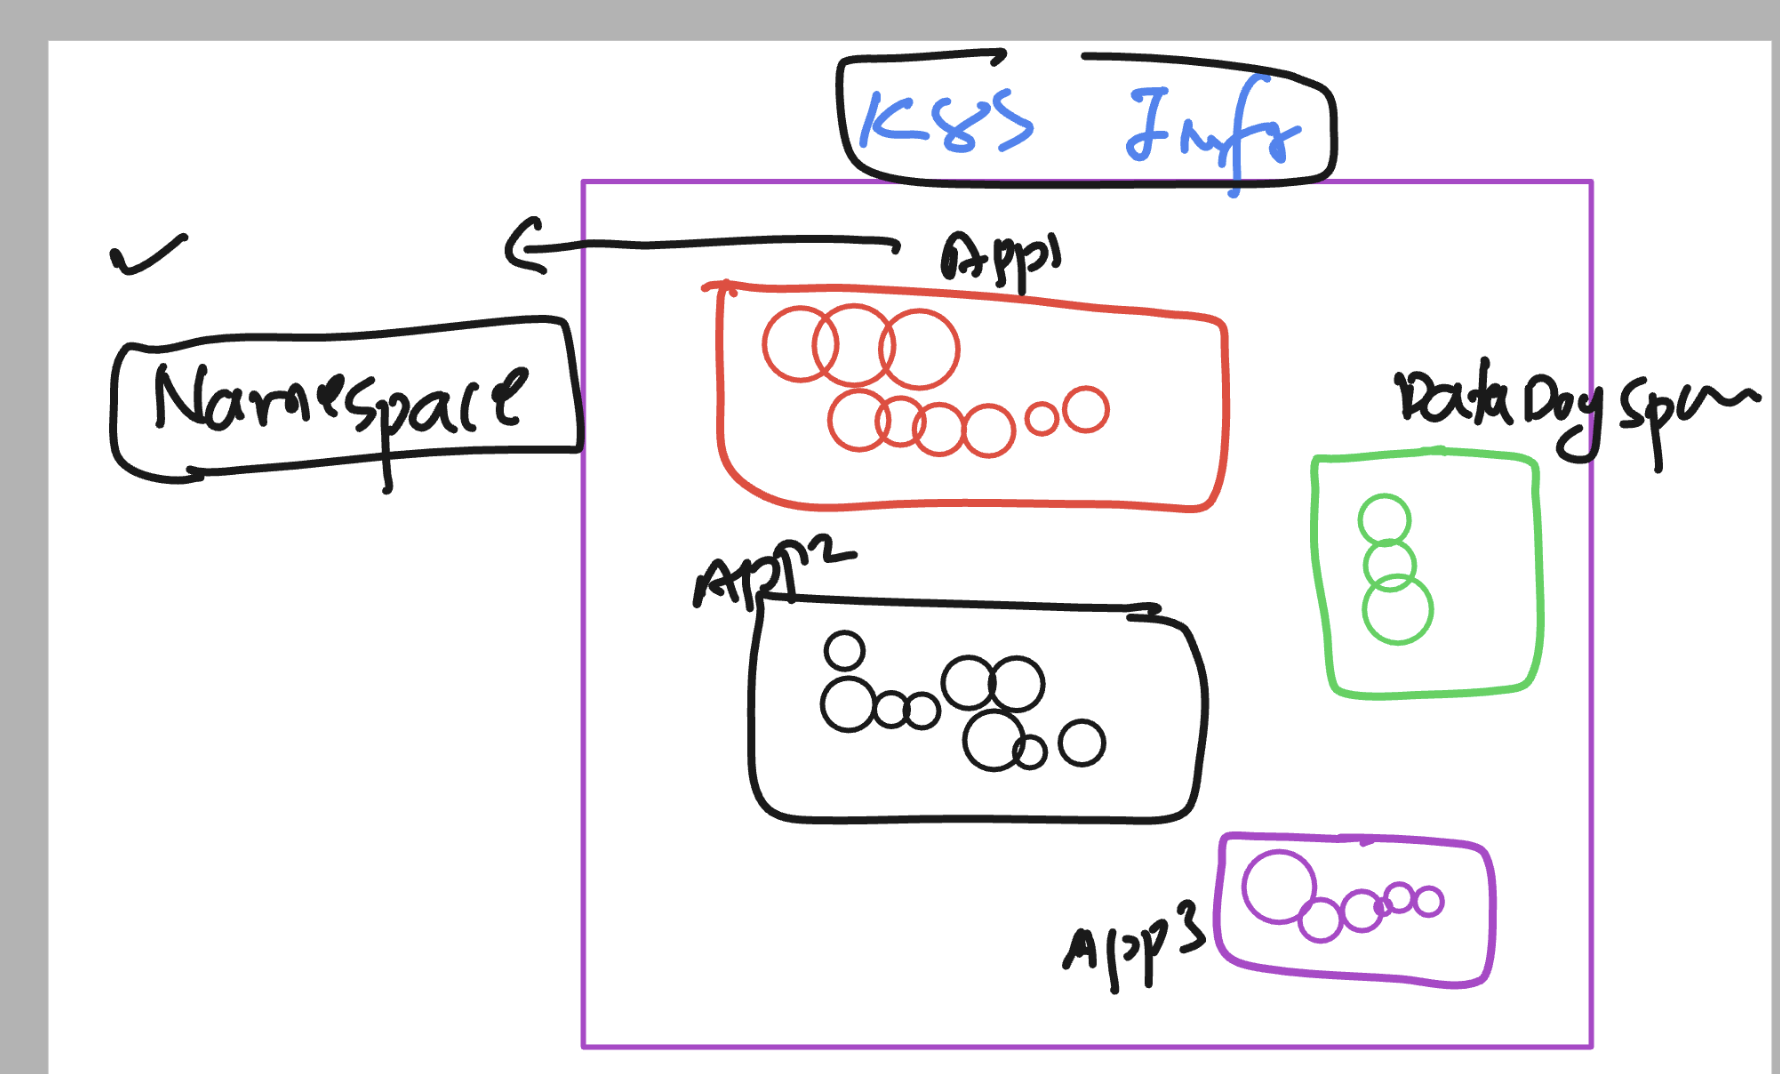 K8S Infra
App1
Namespace
DataDog
App2
App3